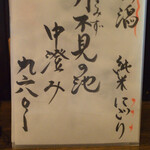 潟 純米にごり
月不見の池
中澄み
九六〇